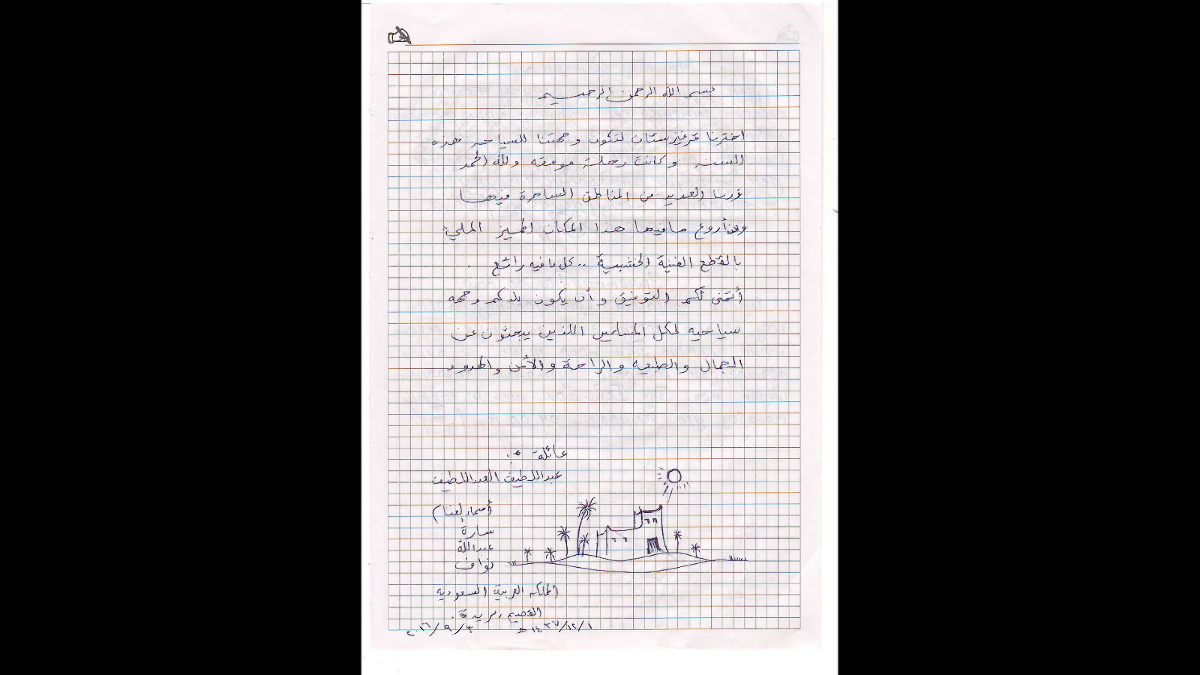 بسم الله الرحمن الرحيم
اخترنا قرغيزستان لتكون وجهتنا للسياحه هذه
السنه وكانت رحلة موفقه ولله الحمد
زرنا العديد من المناطق الساحرة فيها
أروع مافيها هذا المكان المميز المليئ
بالقطع الفنية الخشبية .. كل مافيه رائع .
أتمنى لكم التوفيق وأن يكون بلدكم وجهه
سياحيه لكل المسلمين اللذين يبحثون عن
الجمال والطبيعه والراحة والأمن والهدوء
عائلة :
عبداللطيف العبداللطيف
أسماء الغنام
سارة
عبدالله
نواف
المملكه العربية السعوديه
القصيم بريدة .
١/١٢/١٤٣٧ هـ ٣/٩/٢٠١٦